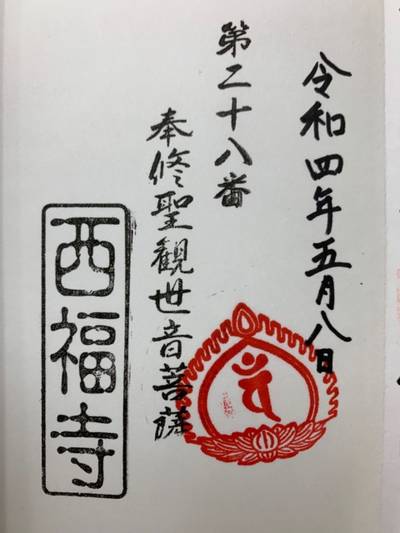 令和四年五月八日
第二十八番
奉修聖観世音菩薩
西福寺